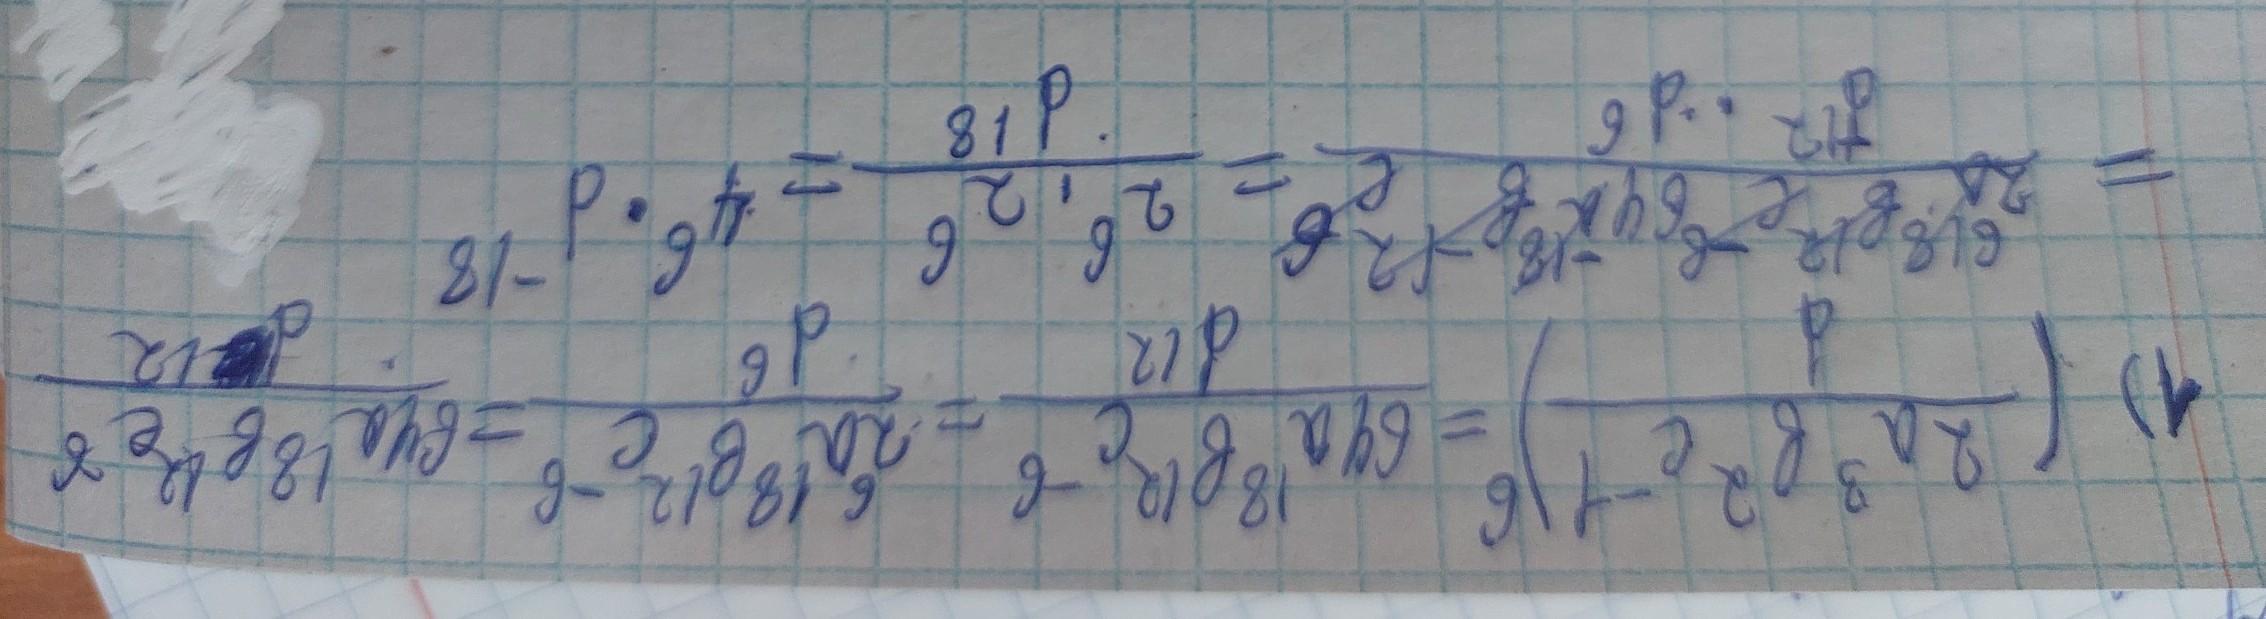 1) (2a³b²c⁻¹/d)⁶ = 64a¹⁸b¹²c⁻⁶/d¹² = 2⁶a¹⁸b¹²c⁻⁶/d⁶ = 64a¹⁸b¹²c⁶/d¹²
= 2⁶a¹⁸b¹²c⁻⁶64a⁻¹⁸b⁻¹²c⁶/d¹²·d⁶ = 2⁶·2⁶/d¹⁸ = 4⁶·d⁻¹⁸